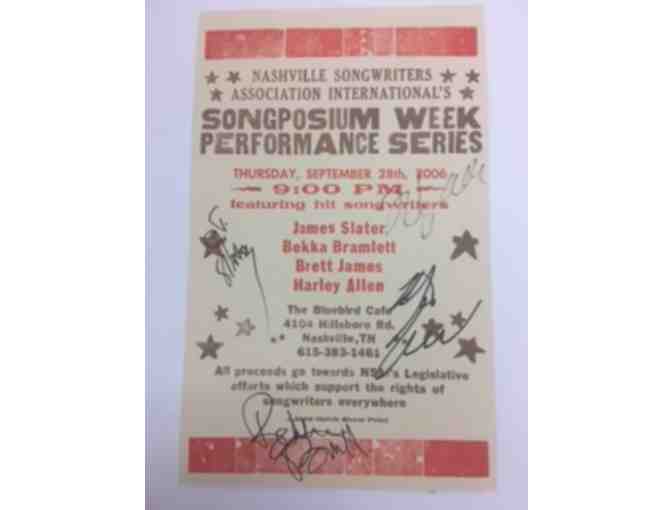 NASHVILLE SONGWRITERS
ASSOCIATION INTERNATIONAL'S
SONGPOSIUM WEEK
PERFORMANCE SERIES
THURSDAY, SEPTEMBER 28th, 2006
9:00 PM
featuring hit songwriters
James Slater
Bekka Bramlett
Brett James
Harley Allen
The Bluebird Cafe
4104 Hillsboro Rd.
Nashville, TN
615-383-1461
All proceeds go towards NSAI's Legislative
efforts which support the rights of
songwriters everywhere
Hatch Show Print